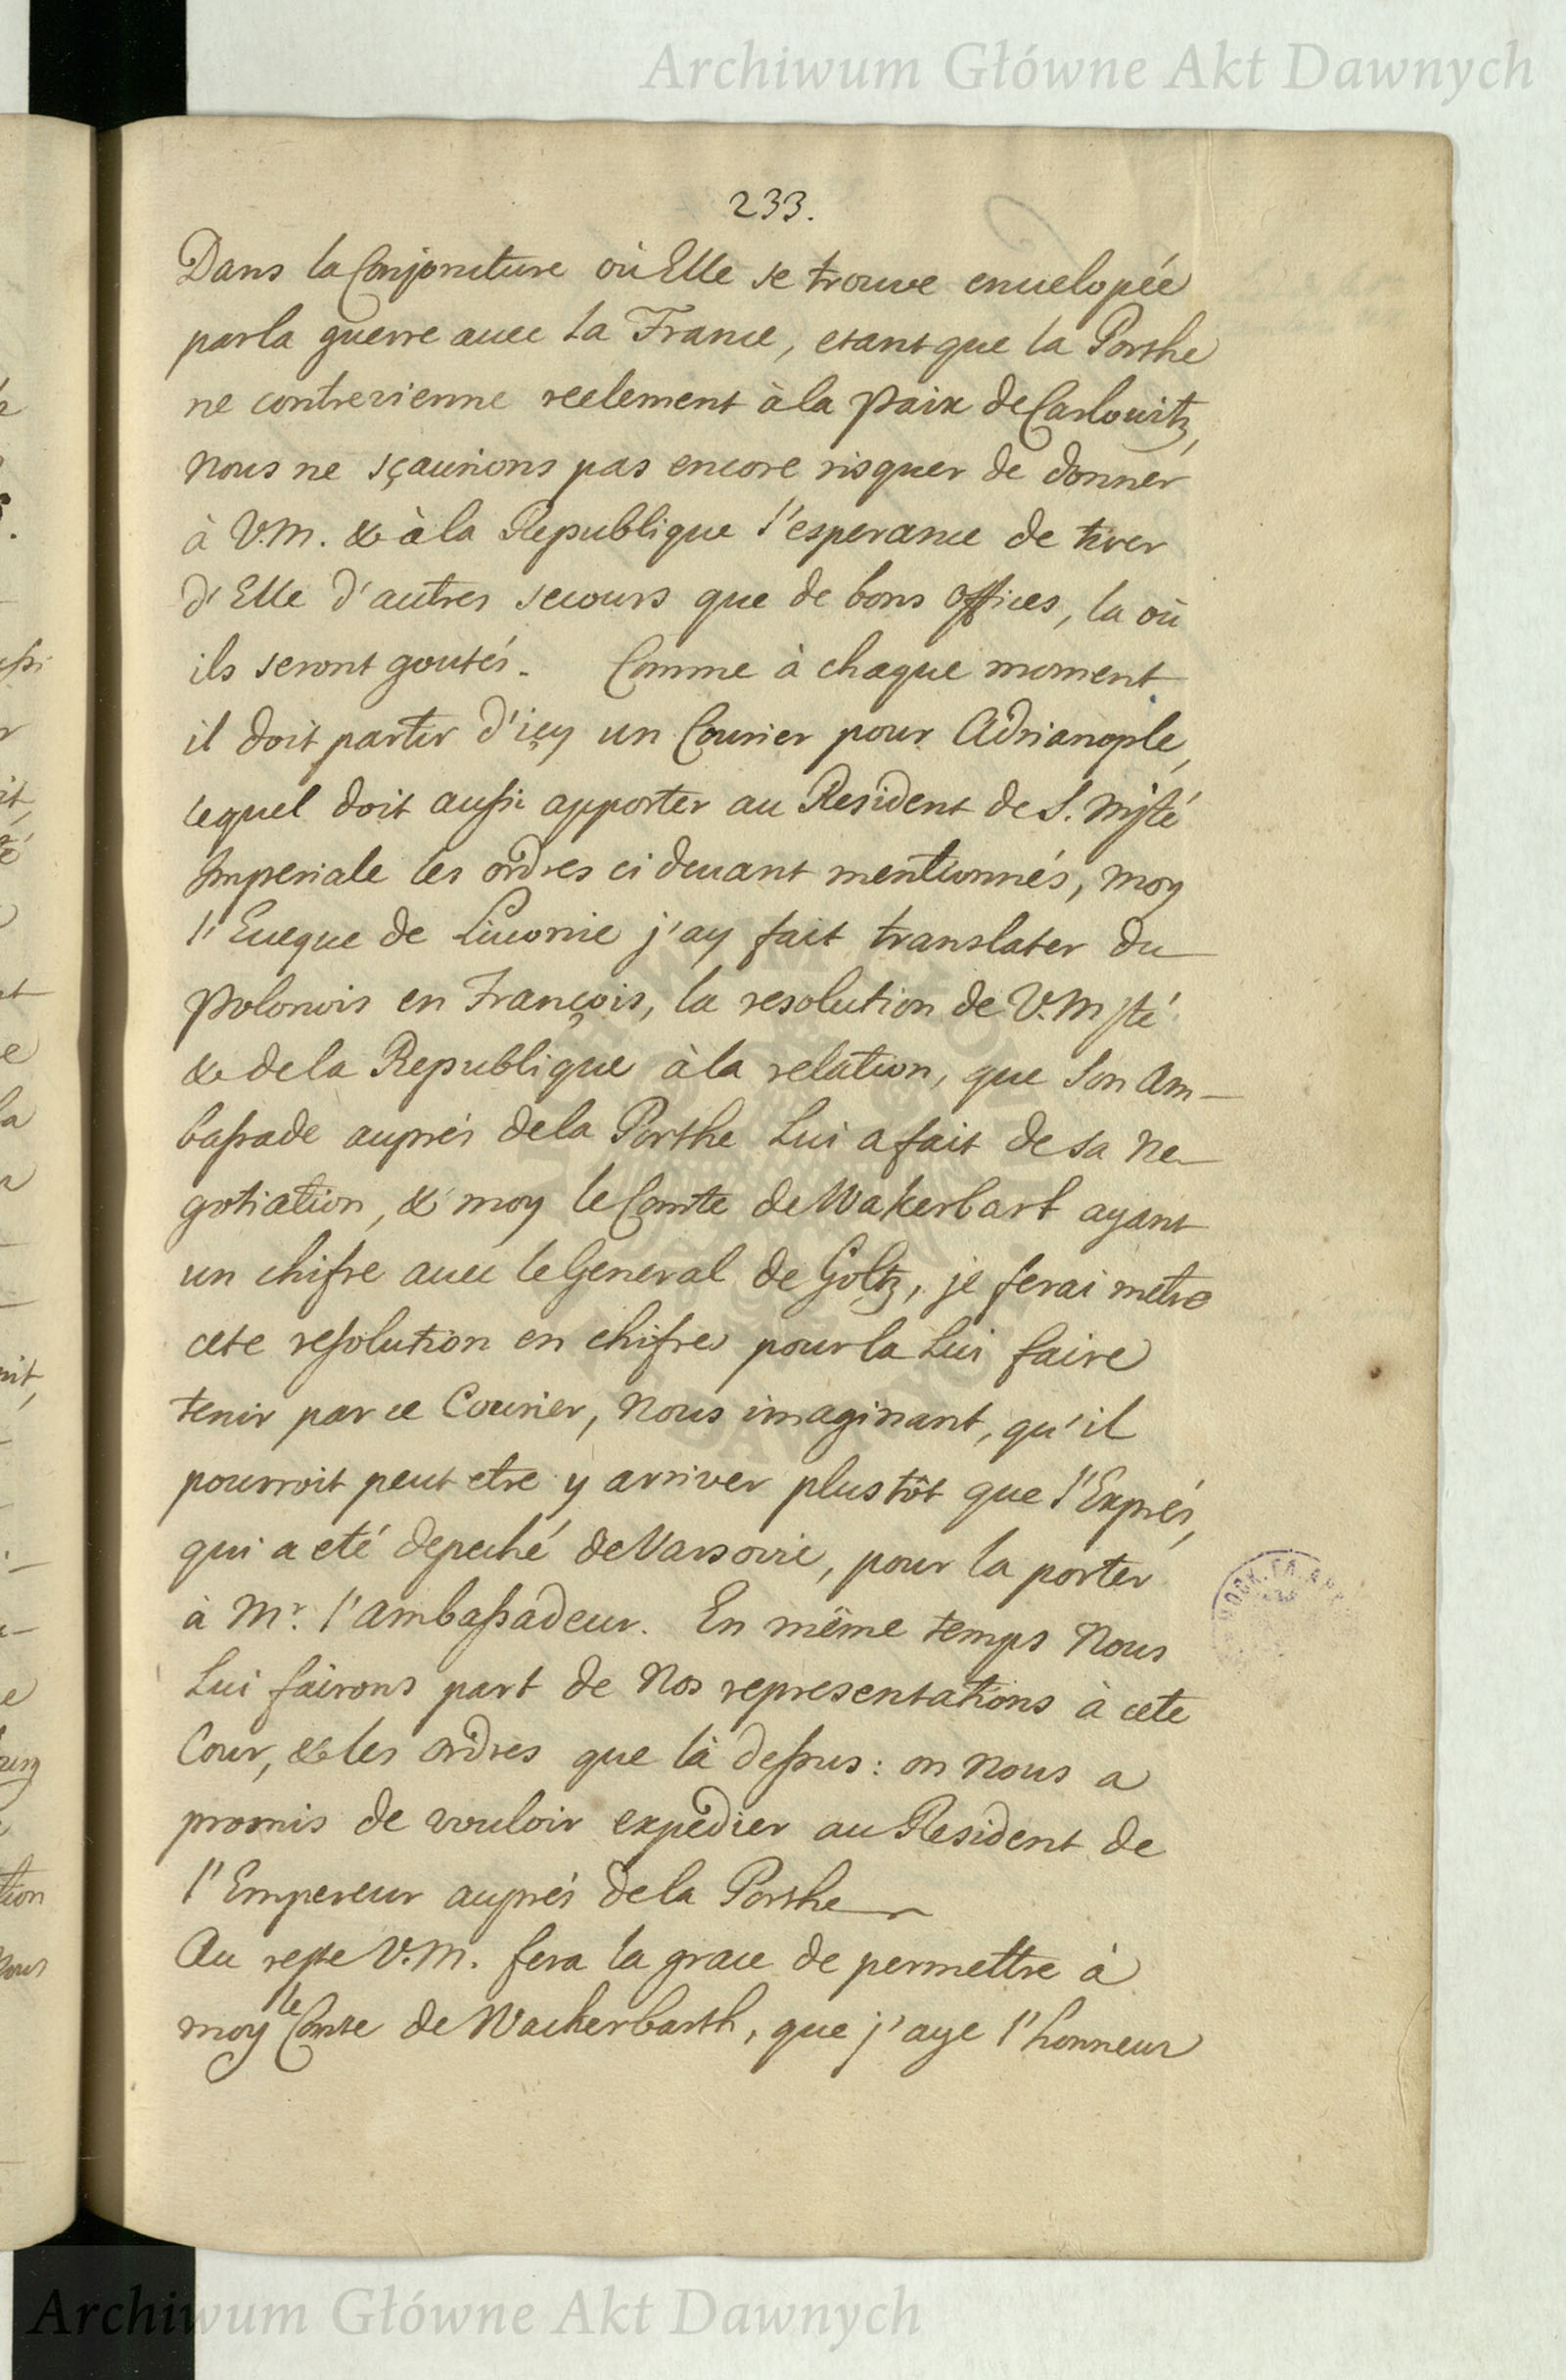 Archiwum Główne Akt Dawnych
233.
Dans la Conjoncture où Elle se trouve envelopée
par la guerre avec la France, etant que la Porthe
ne contrevienne reelement à la paix de Carlowitz,
nous ne sçaurions pas encore risquer de donner
à V.M. & à la Republique l'esperance de tirer
d'Elle d'autres secours que de bons offices, la où
ils seront goutés. Comme à chaque moment
il doit partir d'icy un Courier pour Adrianople,
lequel doit aussi apporter au Resident de S. Mjsté
Imperiale les ordres ci devant mentionnés, moy
l'Eveque de Livonie j'ay fait translater du
Polonois en François, la resolution de V. Mjsté
& de la Republique à la relation, que Son Am-
bassade auprés de la Porthe Lui a fait de sa Ne-
gotiation, & moy le Comte de Wakerbart ayant
un chifre avec le General de Goltz, je ferai metre
cete resolution en chifres pour la Lui faire
tenir par ce Courier, nous imaginant, qu'il
pourroit peut etre y arriver plustôt que l'Exprés,
qui a eté depeché de Varsovie, pour la porter
à Mr. l'ambassadeur. En même temps Nous
Lui fairons part de Nos representations à cete
Cour, & les ordres que là dessus: on nous a
promis de vouloir expedier au Resident de
l'Empereur auprés de la Porthe
Au reste V.M. fera la grace de permettre à
moy le Comte de Wackerbarth, que j'aye l'honneur
Archiwum Główne Akt Dawnych